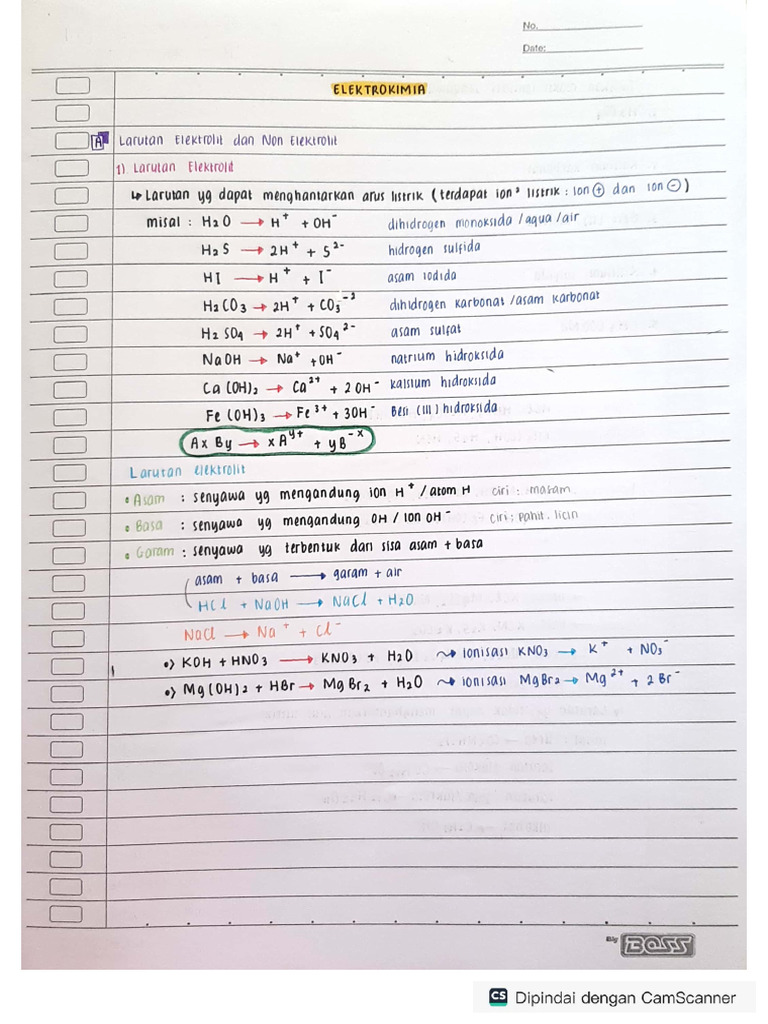 No.
Date:
ELEKTROKIMIA
A Larutan Elektrolit dan Non Elektrolit
1) Larutan Elektrolit
↳ Larutan yg dapat menghantarkan arus listrik (terdapat ion² listrik : ion ⊕ dan ion ⊖)
misal : H2O → H⁺ + OH⁻ dihidrogen monoksida /aqua/air
H2S → 2H⁺ + S²⁻ hidrogen sulfida
HI → H⁺ + I⁻ asam iodida
H2CO3 → 2H⁺ + CO3⁻² dihidrogen karbonat /asam karbonat
H2SO4 → 2H⁺ + SO4²⁻ asam sulfat
NaOH → Na⁺ + OH⁻ natrium hidroksida
Ca(OH)2 → Ca²⁺ + 2OH⁻ kalsium hidroksida
Fe(OH)3 → Fe³⁺ + 3OH⁻ Besi (III) hidroksida
AxBy → xA^y+ + yB^-x
Larutan elektrolit
• Asam : senyawa yg mengandung ion H⁺ / atom H ciri : masam
• Basa : senyawa yg mengandung OH / ion OH⁻ ciri : pahit, licin
• Garam : senyawa yg terbentuk dari sisa asam + basa
asam + basa → garam + air
HCl + NaOH → NaCl + H2O
NaCl → Na⁺ + Cl⁻
•) KOH + HNO3 → KNO3 + H2O ⤳ ionisasi KNO3 → K⁺ + NO3⁻
•) Mg(OH)2 + HBr → MgBr2 + H2O ⤳ ionisasi MgBr2 → Mg²⁺ + 2Br⁻
Big BOSS
CS Dipindai dengan CamScanner